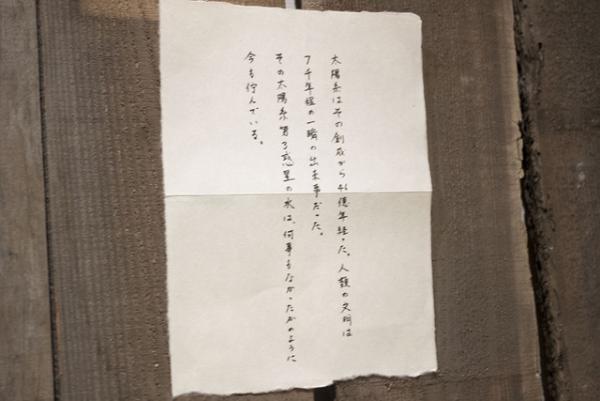 太陽系はその創成から46億年経った。人類の文明は
7千年程の一瞬の出来事だった。
その太陽系第3惑星の水は、何事もなかったかのように
今も佇んでいる。